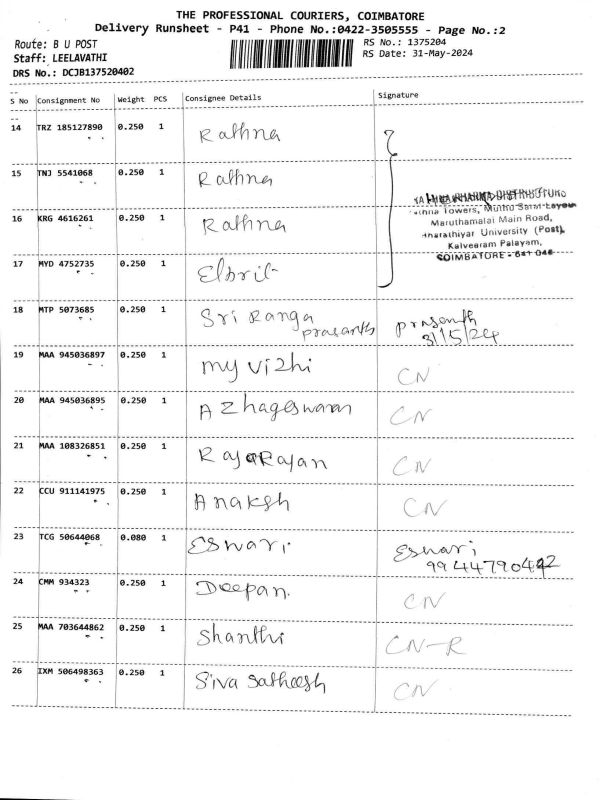 THE PROFESSIONAL COURIERS, COIMBATORE
Delivery Runsheet - P41 - Phone No.:0422-3505555 - Page No.:2
Route: B U POST
RS No.: 1375204
Staff: LEELAVATHI
RS Date: 31-May-2024
DRS No.: DCJB137520402
S No Consignment No Weight PCS Consignee Details Signature
14 TRZ 185127890 0.250 1 Rathna
15 TNJ 5541068 0.250 1 Rathna
16 KRG 4616261 0.250 1 Rathna
Towers,
Maruthamalai Main Road,
University (Post),
Kalveeram Palayam,
COIMBATORE - 641 046
17 MYD 4752735 0.250 1 Elbrit
18 MTP 5073685 0.250 1 Sri Ranga
prasanth
prasanth
31/5/24
19 MAA 945036897 0.250 1 my vizhi CN
20 MAA 945036895 0.250 1 Azhageswaran CN
21 MAA 108326851 0.250 1 RajaRajan CN
22 CCU 911141975 0.250 1 Anaksh CN
23 TCG 50644068 0.080 1 Eswari Eswari
24 CMM 934323 0.250 1 Deepan. CN
25 MAA 703644862 0.250 1 Shanthi CN-R
26 IXM 506498363 0.250 1 Siva Satheesh CN